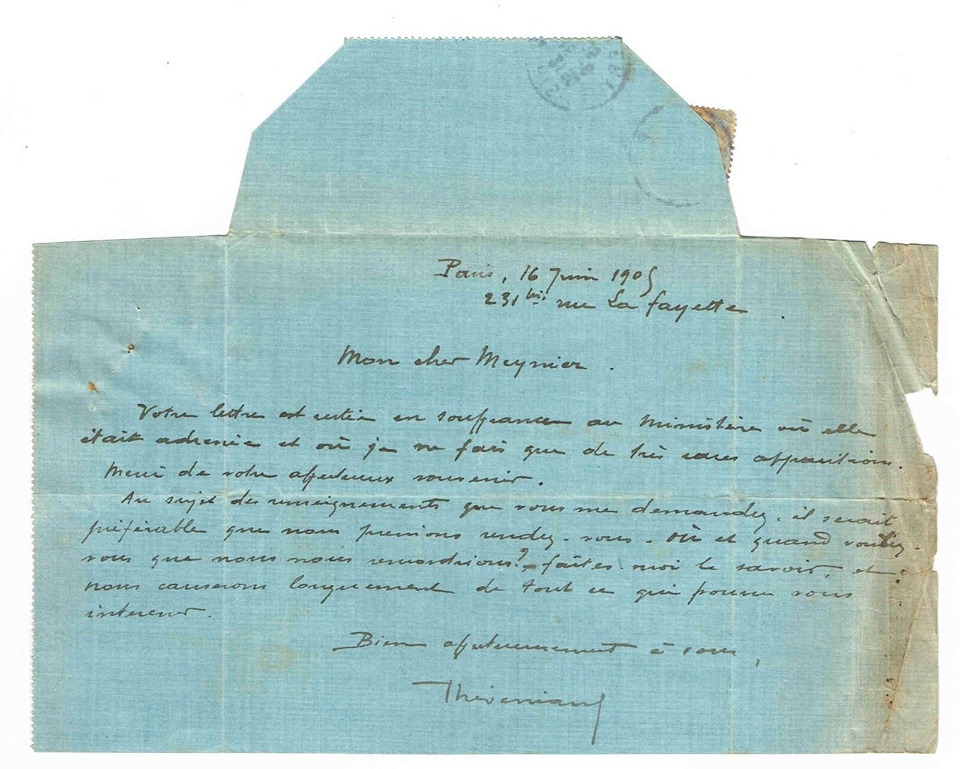 Paris, 16 Juin 1905
231 bis rue La Fayette.
Mon cher Meynier.
Votre lettre est restée en souffrance au Ministère où elle
était adressée et où je ne fais que de très rares apparitions.
Merci de votre affectueux souvenir.
Au sujet des renseignements que vous me demandez, il serait
préférable que nous prenions rendez-vous. Où et quand voulez-
vous que nous nous rencontrions? faites moi le savoir, et
nous causerons longuement de tout ce qui pourra vous
intéresser.
Bien affectueusement à vous,